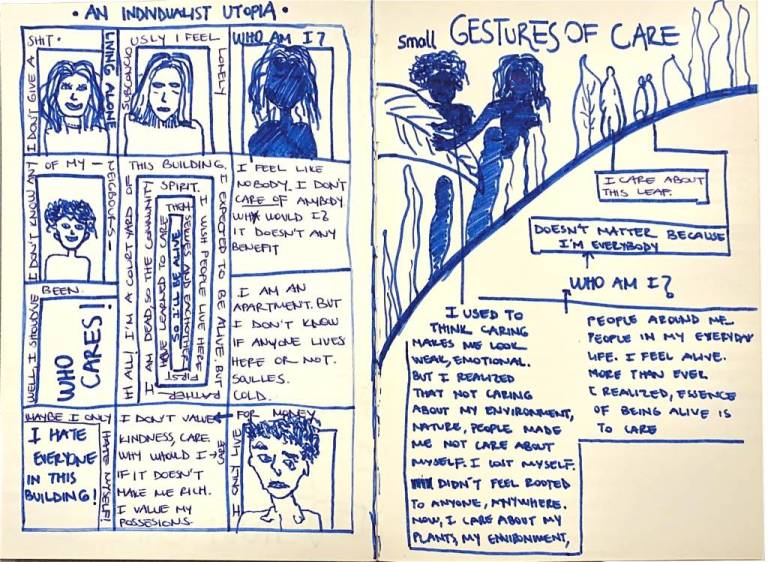 • AN INDIVIDUALIST UTOPIA •
I DON'T GIVE A
SHIT.
LIVING ALONE
SUBCONCIO
USLY I FEEL
LONELY
WHO AM I?
I DON'T KNOW ANY
OF MY —
NEIGBOURS —
HI ALL! I'M A COURTYARD OF
THIS BUILDING.
I EXPECTED TO BE ALIVE. BUT
RATHER
I AM DEAD, SO THE COMMUNITY
SPIRIT.
I WISH PEOPLE LIVE HERE
FIRST
HAVE LEARNED TO CARE
THEM
SELVES AND EACHOTHER
SO I'LL BE ALIVE
I FEEL LIKE
NOBODY. I DON'T
CARE OF ANYBODY
WHY WOULD I?
IT DOESN'T ANY
BENEFIT
WELL, I SHOULD'VE
BEEN
WHO
CARES!
I AM AN
APARTMENT. BUT
I DON'T KNOW
IF ANYONE LIVES
HERE OR NOT.
SOULLES.
COLD.
MAYBE I ONLY
HATE MYSELF!
I HATE
EVERYONE
IN THIS
BUILDING!
I DON'T VALUE
KINDNESS, CARE.
WHY WOULD I
IF IT DOESN'T
MAKE ME RICH.
I VALUE MY
POSSESIONS.
I ONLY LIVE
FOR MONEY
small GESTURES OF CARE
I CARE ABOUT
THIS LEAF.
DOESN'T MATTER BECAUSE
I'M EVERYBODY
WHO AM I?
I USED TO
THINK CARING
MAKES ME LOOK
WEAK, EMOTIONAL.
BUT I REALIZED
THAT NOT CARING
ABOUT MY ENVIRONMENT,
NATURE, PEOPLE MADE
ME NOT CARE ABOUT
MYSELF. I LOST MYSELF.
DIDN'T FEEL ROOTED
TO ANYONE, ANYWHERE.
NOW, I CARE ABOUT MY
PLANTS, MY ENVIRONMENT,
PEOPLE AROUND ME.
PEOPLE IN MY EVERYDAY
LIFE. I FEEL ALIVE.
MORE THAN EVER
I REALIZED, ESSENCE
OF BEING ALIVE IS
TO CARE